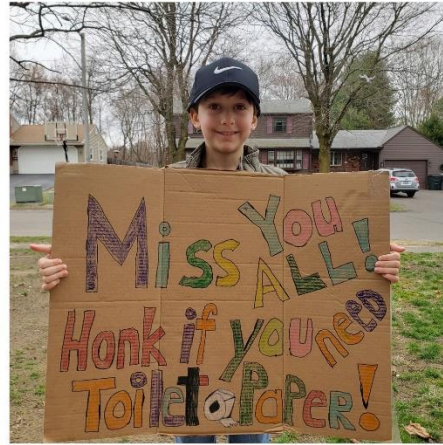 Miss You
ALL!
Honk if you need
Toilet Paper!